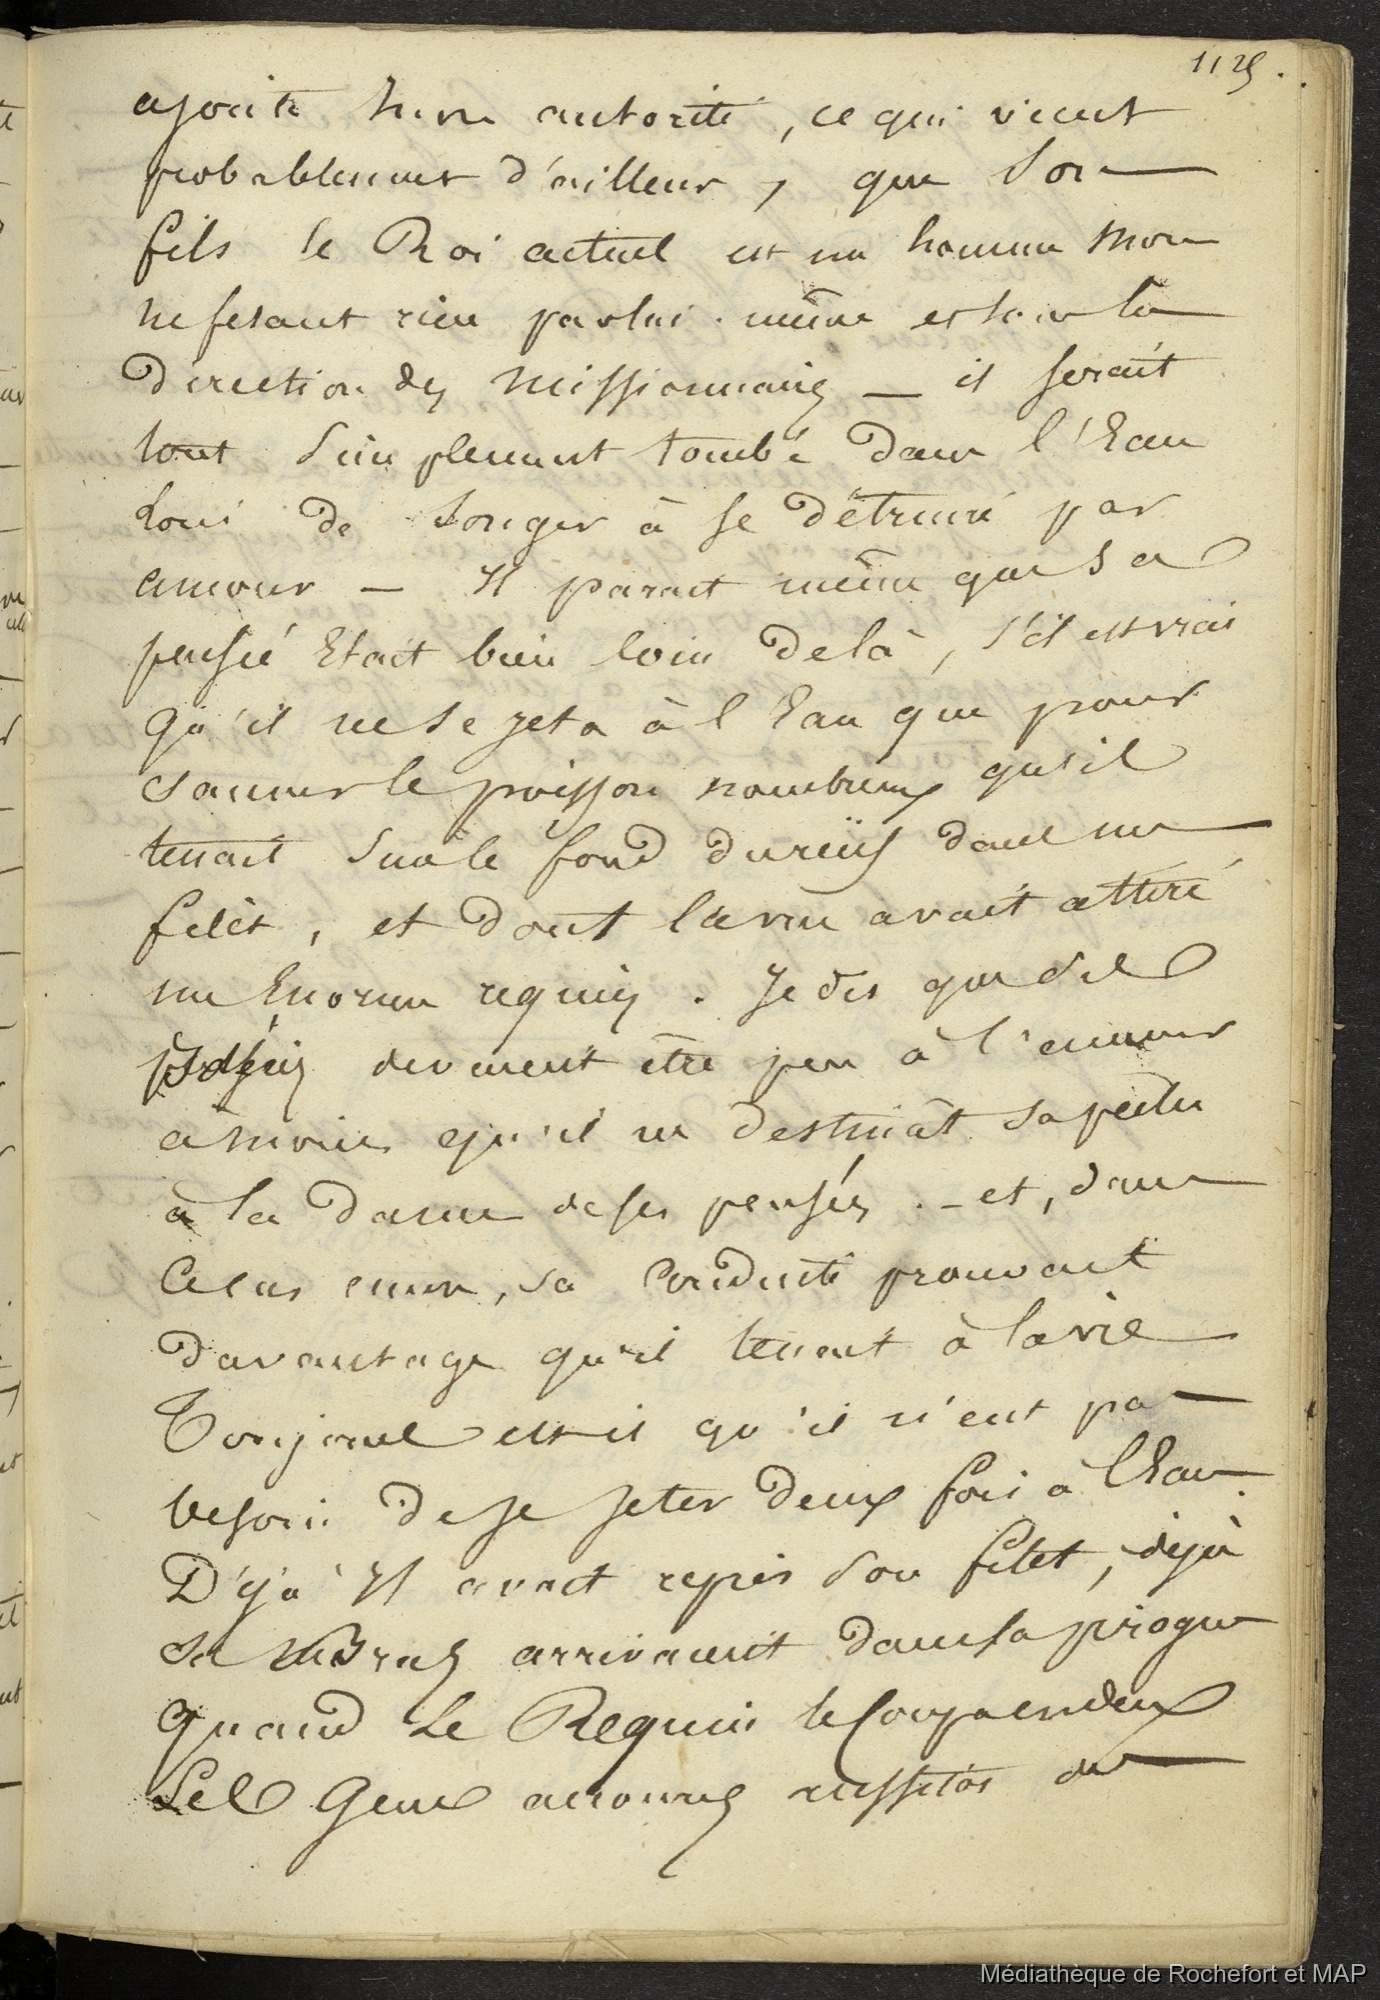 1125.
ajoute mon autorité, ce qui vient
probablement d'ailleur, que son
fils le Roi actuel est un homme mou
ne fesant rien par lui-même et sous la
direction des missionnaires — il serait
tout simplement tombé dans l'Eau
Loin de songer à se détruire par
amour — Il parait même que sa
pensée Etait bien loin de là, s'il est vrai
qu'il ne se jeta à l'Eau que pour
sauver le poisson nombreux qu'il
tenait sur le fond du récif dans un
filèt, et dont la vue avait attiré
un Enorme requin. Je dis que ses
pensées devaient être peu à l'amour
à moins qu'il ne destinât sa pêche
à la dame de ses pensées. — et, dans
ce cas encore, sa conduite prouvait
davantage qu'il tenait à la vie
Toujours est-il qu'il n'eut pas
besoin de se jeter deux fois à l'Eau.
Déjà Il avait repris son filet, déjà
ses bras arrivaient dans sa pirogue
quand Le Requin le coupa en deux
Les Gens accourus aussitôt